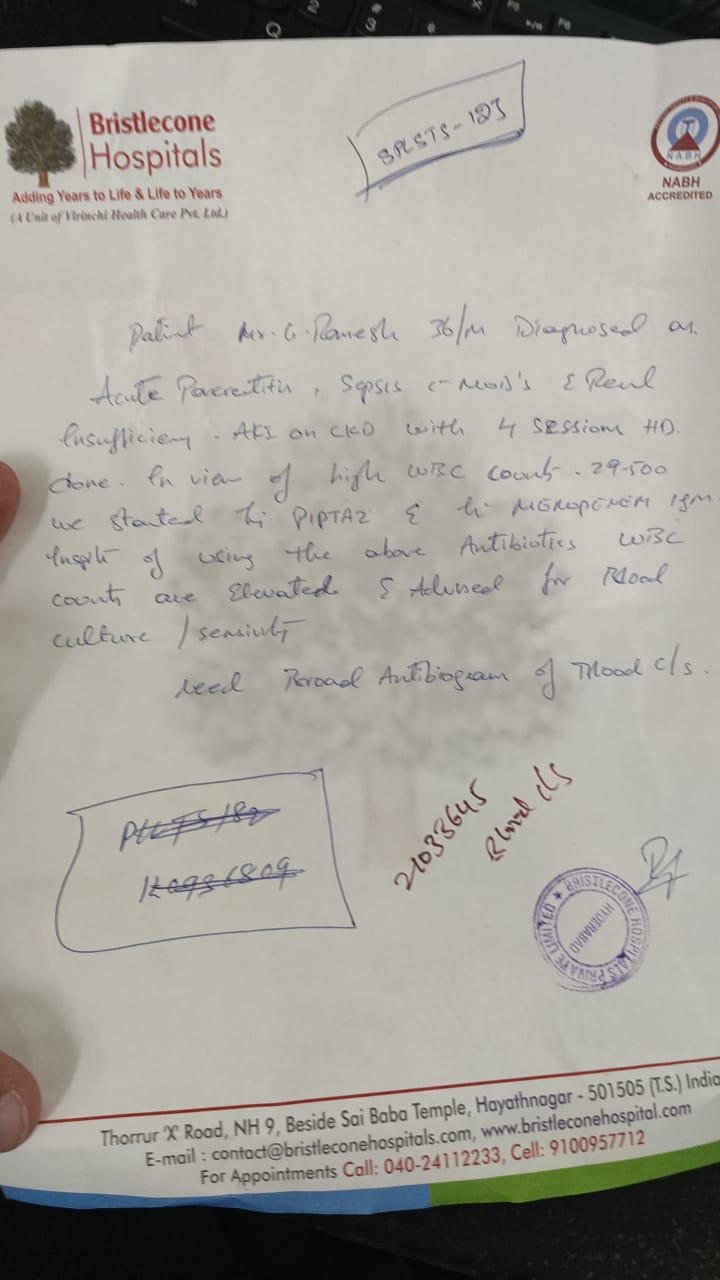 Bristlecone
Hospitals
Adding Years to Life & Life to Years
(A Unit of Virinchi Health Care Pvt. Ltd.)
SPLSTS-123
NABH
NABH
ACCREDITED
Patient Mr. G. Ramesh 36/M Diagnosed as
Acute , Sepsis c- MODS's & Renal
Insufficiency - AKI on CKD with 4 SESSIONS HD.
done. In view of high WBC counts . 29-500
we started PIPTAZ & MEROPENEM 1gm
Inspite of using the above Antibiotics WBC
counts are Elevated & Advised for Blood
culture / sensivity
need Broad Antibiogram of Blood c/s.
21033645
Blood c/s
BRISTLECONE HOSPITALS PRIVATE LIMITED
HYDERABAD
Thorrur 'X' Road, NH 9, Beside Sai Baba Temple, Hayathnagar - 501505 (T.S.) India
E-mail : contact@bristleconehospitals.com, www.bristleconehospital.com
For Appointments Call: 040-24112233, Cell: 9100957712